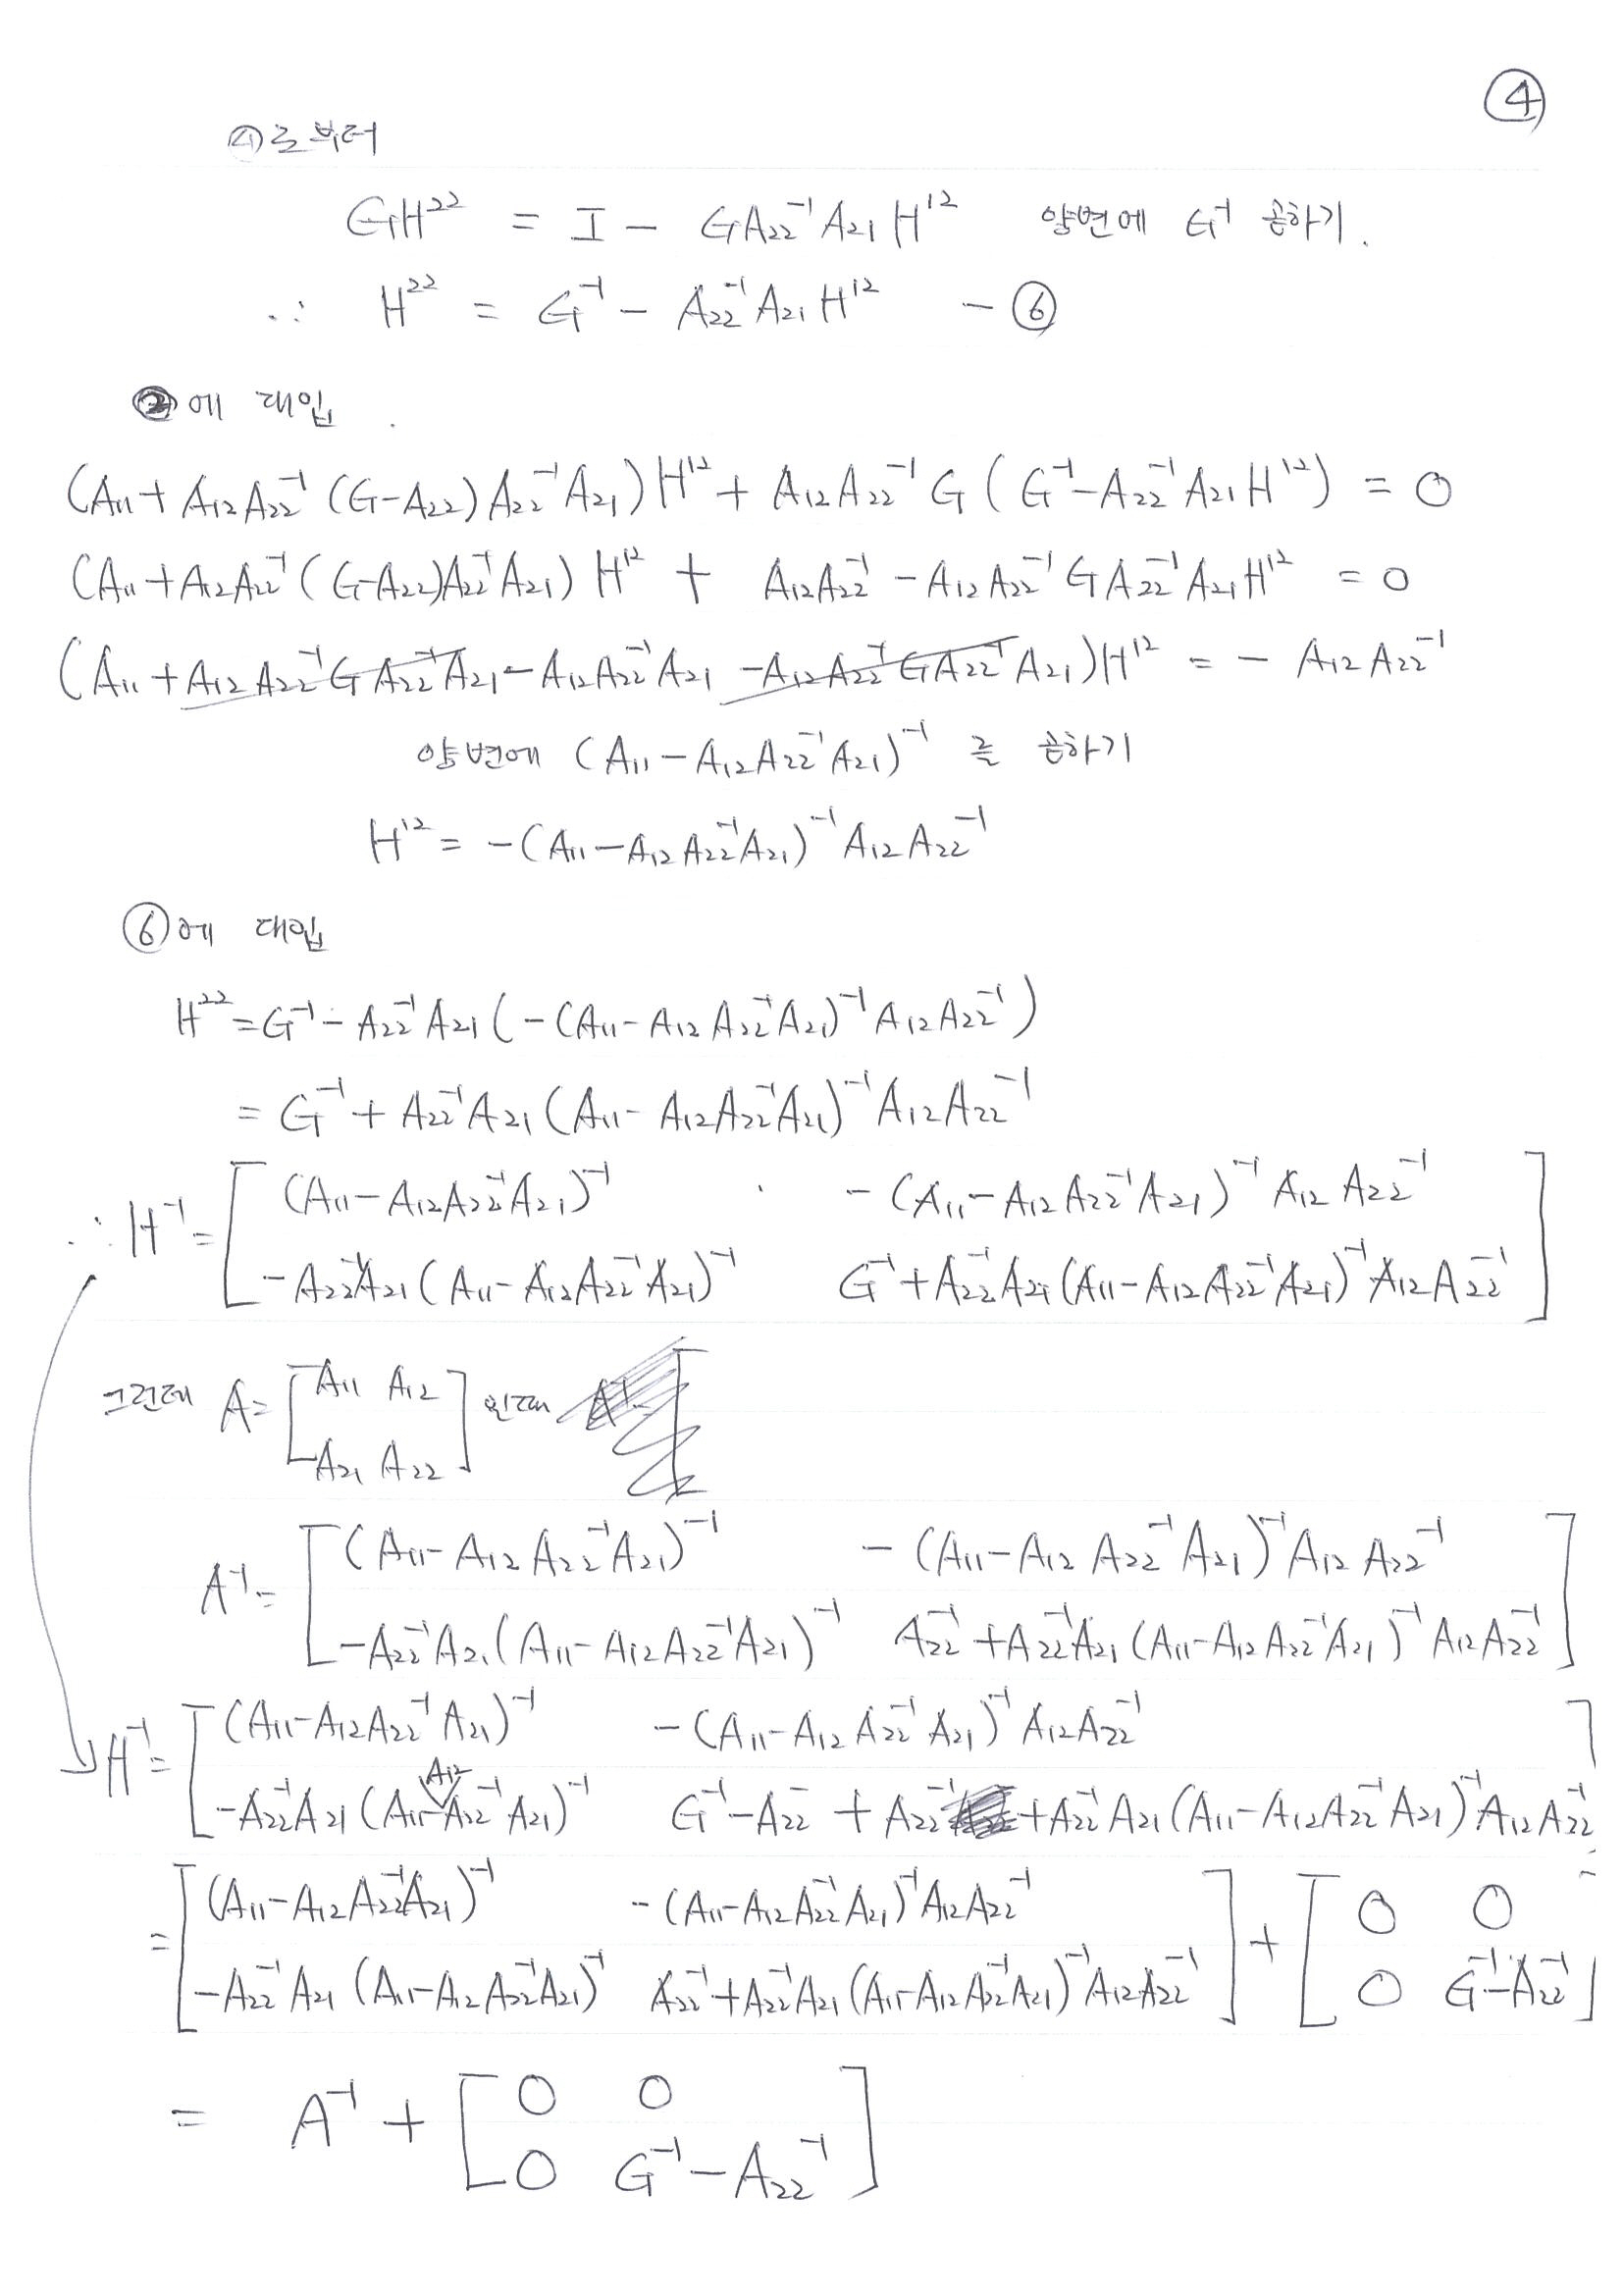 ④
④로부터
GH²² = I - GA₂₂⁻¹A₂₁H¹² 양변에 G⁻¹ 곱하기.
∴ H²² = G⁻¹ - A₂₂⁻¹A₂₁H¹² - ⑥
②에 대입.
(A₁₁ + A₁₂A₂₂⁻¹(G-A₂₂)A₂₂⁻¹A₂₁)H¹² + A₁₂A₂₂⁻¹G(G⁻¹-A₂₂⁻¹A₂₁H¹²) = 0
(A₁₁ + A₁₂A₂₂⁻¹(G-A₂₂)A₂₂⁻¹A₂₁)H¹² + A₁₂A₂₂⁻¹ - A₁₂A₂₂⁻¹GA₂₂⁻¹A₂₁H¹² = 0
(A₁₁ + A₁₂A₂₂⁻¹GA₂₂⁻¹A₂₁ - A₁₂A₂₂⁻¹A₂₁ - A₁₂A₂₂⁻¹GA₂₂⁻¹A₂₁)H¹² = - A₁₂A₂₂⁻¹
양변에 (A₁₁ - A₁₂A₂₂⁻¹A₂₁)⁻¹ 를 곱하기
H¹² = -(A₁₁ - A₁₂A₂₂⁻¹A₂₁)⁻¹A₁₂A₂₂⁻¹
⑥에 대입
H²² = G⁻¹ - A₂₂⁻¹A₂₁(-(A₁₁ - A₁₂A₂₂⁻¹A₂₁)⁻¹A₁₂A₂₂⁻¹)
= G⁻¹ + A₂₂⁻¹A₂₁(A₁₁ - A₁₂A₂₂⁻¹A₂₁)⁻¹A₁₂A₂₂⁻¹
∴ H⁻¹ = [ (A₁₁ - A₁₂A₂₂⁻¹A₂₁)⁻¹ -(A₁₁ - A₁₂A₂₂⁻¹A₂₁)⁻¹A₁₂A₂₂⁻¹
-A₂₂⁻¹A₂₁(A₁₁ - A₁₂A₂₂⁻¹A₂₁)⁻¹ G⁻¹ + A₂₂⁻¹A₂₁(A₁₁ - A₁₂A₂₂⁻¹A₂₁)⁻¹A₁₂A₂₂⁻¹ ]
그런데 A = [ A₁₁ A₁₂ 일때
A₂₁ A₂₂ ]
A⁻¹ = [ (A₁₁ - A₁₂A₂₂⁻¹A₂₁)⁻¹ -(A₁₁ - A₁₂A₂₂⁻¹A₂₁)⁻¹A₁₂A₂₂⁻¹
-A₂₂⁻¹A₂₁(A₁₁ - A₁₂A₂₂⁻¹A₂₁)⁻¹ A₂₂⁻¹ + A₂₂⁻¹A₂₁(A₁₁ - A₁₂A₂₂⁻¹A₂₁)⁻¹A₁₂A₂₂⁻¹ ]
H⁻¹ = [ (A₁₁ - A₁₂A₂₂⁻¹A₂₁)⁻¹ -(A₁₁ - A₁₂A₂₂⁻¹A₂₁)⁻¹A₁₂A₂₂⁻¹
-A₂₂⁻¹A₂₁(A₁₁ - A₁₂A₂₂⁻¹A₂₁)⁻¹ G⁻¹ - A₂₂⁻ + A₂₂⁻¹ + A₂₂⁻¹A₂₁(A₁₁ - A₁₂A₂₂⁻¹A₂₁)⁻¹A₁₂A₂₂⁻¹ ]
= [ (A₁₁ - A₁₂A₂₂⁻¹A₂₁)⁻¹ -(A₁₁ - A₁₂A₂₂⁻¹A₂₁)⁻¹A₁₂A₂₂⁻¹ ] + [ 0 0
-A₂₂⁻¹A₂₁(A₁₁ - A₁₂A₂₂⁻¹A₂₁)⁻¹ A₂₂⁻¹ + A₂₂⁻¹A₂₁(A₁₁ - A₁₂A₂₂⁻¹A₂₁)⁻¹A₁₂A₂₂⁻¹ 0 G⁻¹ - A₂₂⁻¹ ]
= A⁻¹ + [ 0 0
0 G⁻¹ - A₂₂⁻¹ ]